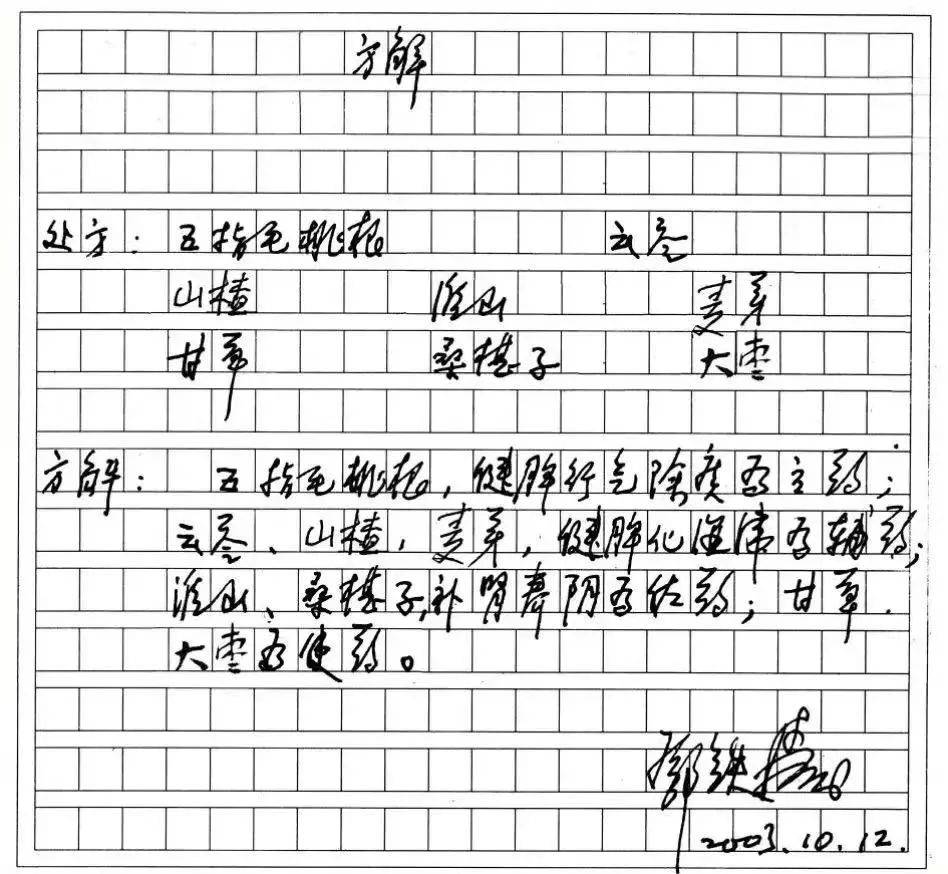 方解
处方：五指毛桃根 云苓
山楂 淮山 麦芽
甘草 桑椹子 大枣
方解：五指毛桃根，健脾行气除痰为主药；
云苓、山楂，麦芽，健脾化湿滞为辅药；
淮山、桑椹子，补肾养阴为佐药；甘草.
大枣为使药。
鄧铁涛
2003.10.12.